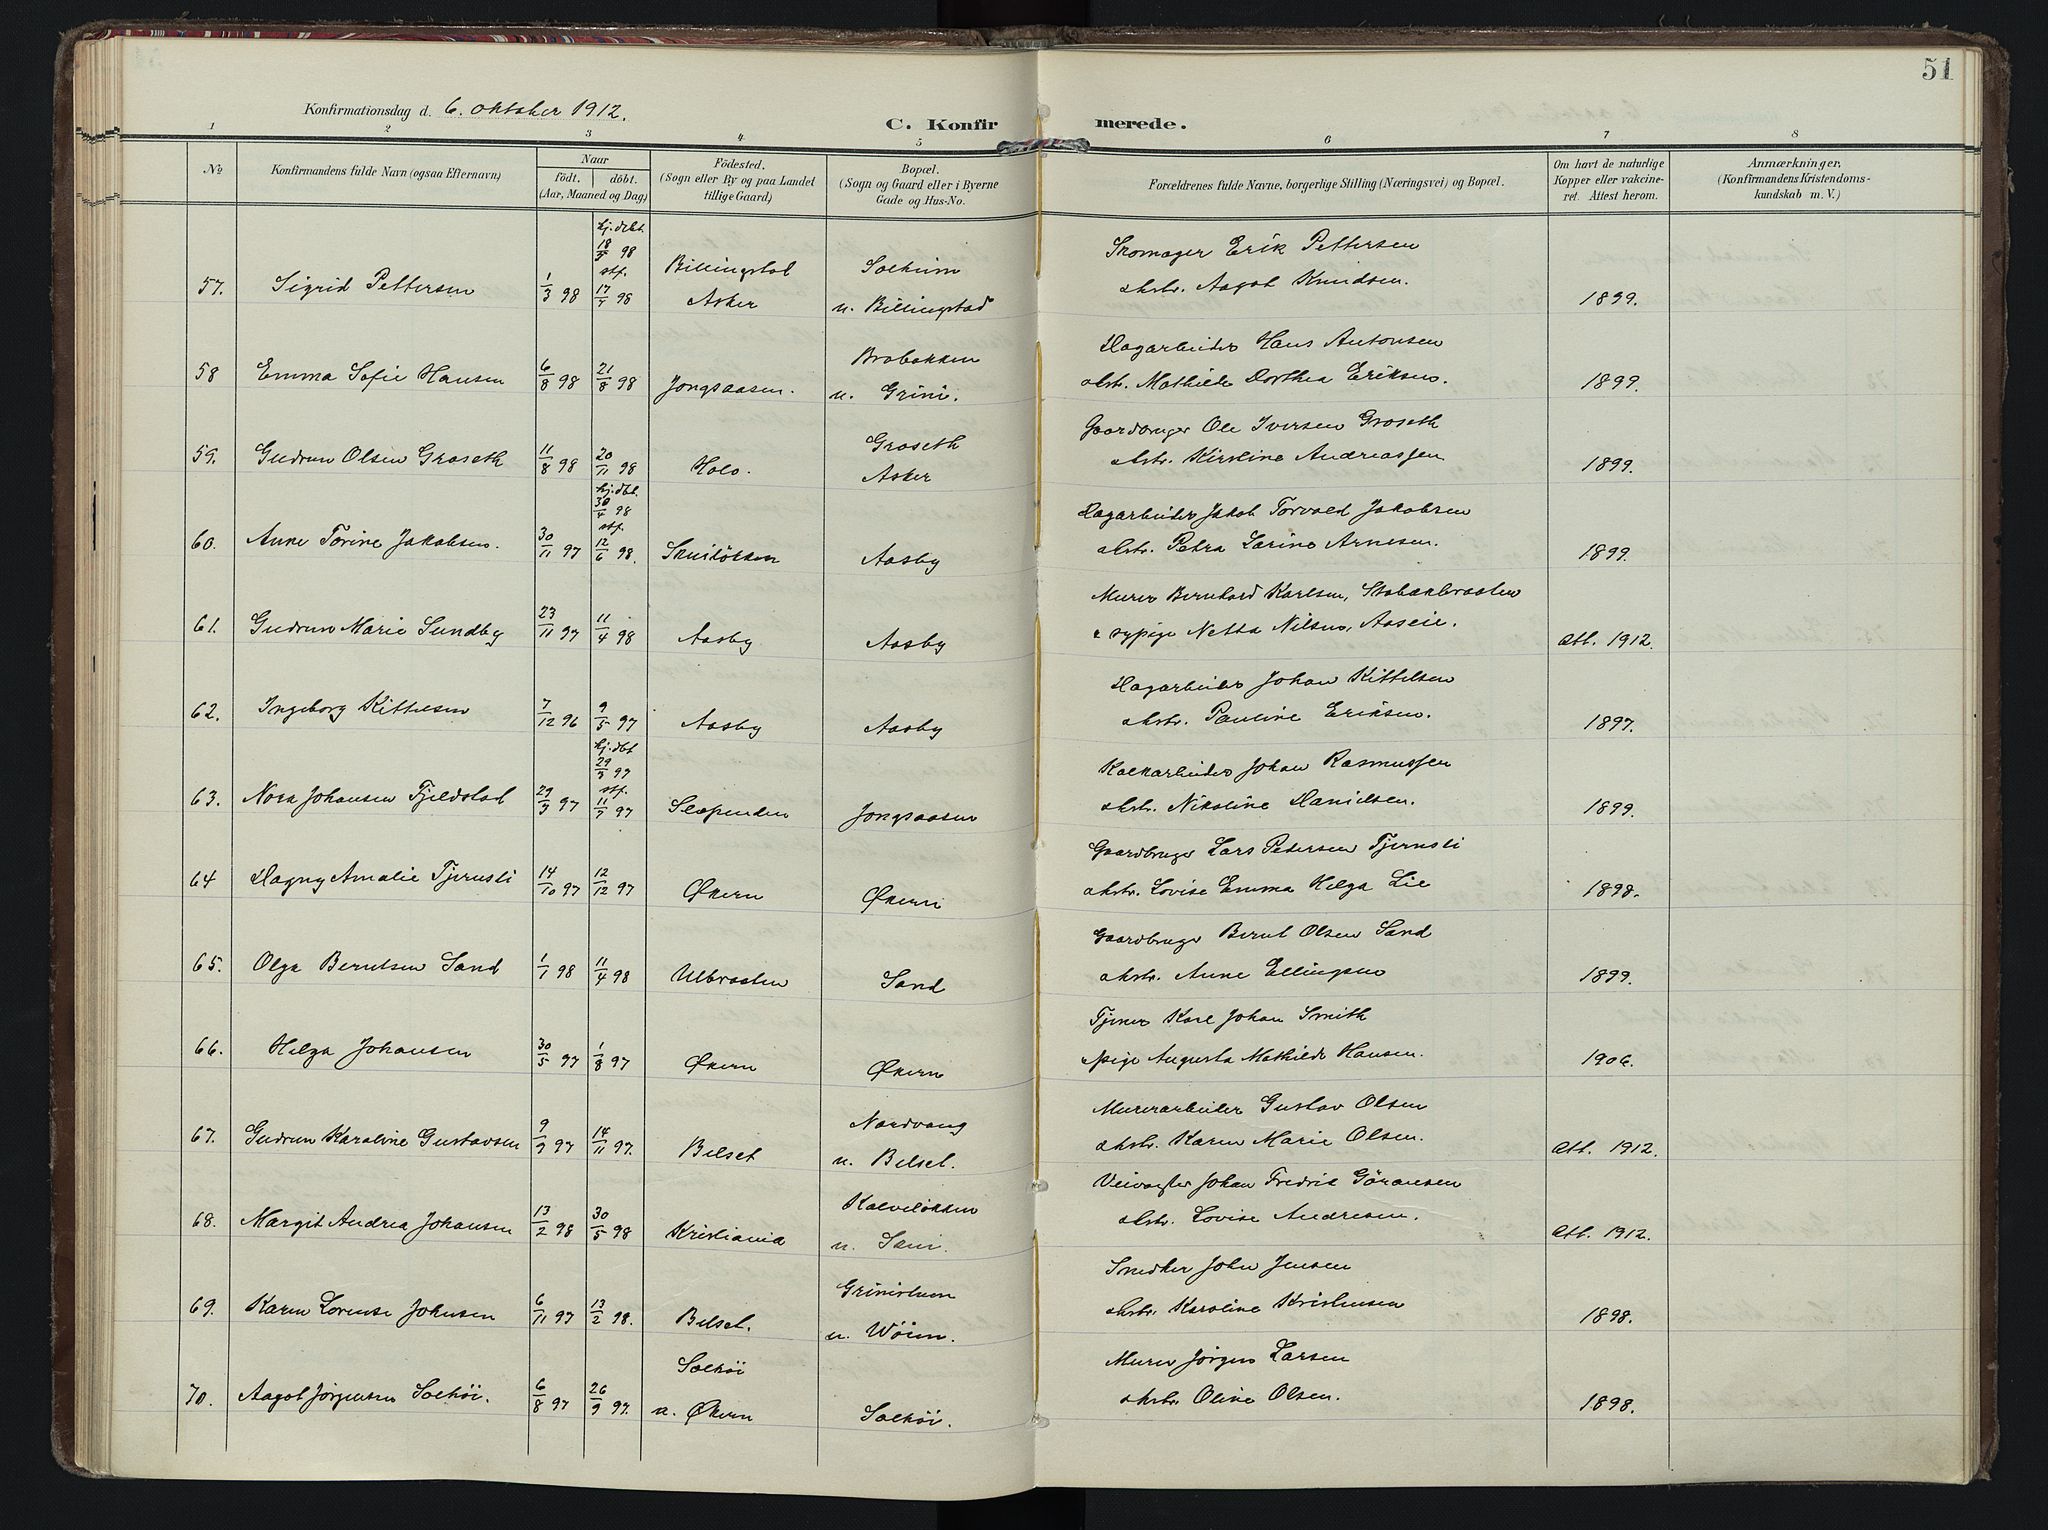 51
Konfirmationsdag d. 6. oktober 1912.
C. Konfirmerede.
1 2 3 4 5 6 7 8
No
Konfirmandens fulde Navn (ogsaa Efternavn)
Naar
født. döbt.
(Aar, Maaned og Dag)
Födested.
(Sogn eller By og paa Landet
tillige Gaard)
Bopæl.
(Sogn og Gaard eller i Byerne
Gade og Hus-No.
Forældrenes fulde Navne, borgerlige Stilling (Næringsvei) og Bopæl.
Om havt de naturlige
Kopper eller vakcine-
ret. Attest herom.
Anmærkninger,
(Konfirmandens Kristendoms-
kundskab m. V.)
hj.døbt.
18/3 98
stf.
57. Sigrid Pettersen 1/3 98 17/4 98 Billingstad Asker Solheim u. Billingstad Skomager Erik Pettersen
ehstr. Aagot Knudsen. 1899.
58 Emma Sofie Hansen 6/8 98 21/8 98 Jongsaasen. Brobakken u. Grini. Dagarbeider Hans Antonsen
ehstr. Mathilde Dorthea Eriksen. 1899.
59. Gudrun Olsen Groseth 11/8 98 20/11 98 Holo. Groseth Asker Gaardbruger Ole Iversen Groseth
ehstr. Kirstine Andreassen 1899.
hj.dbt.
30/4 98
stf.
60. Anne Torine Jakobsen. 30/11 97 12/6 98. Skuiløkken Aasby Dagarbeider Jakob Torvald Jakobsen
ehstr. Petra Larine Arnesen. 1899.
61. Gudrun Marie Sundby 23/11 97 11/4 98 Aasby Aasby Murer Bernhard Karlsen, Stabækbraaten
& sypige Netta Nilsen, Aaseie. att. 1912.
62. Ingeborg Kittelsen 7/12 96 9/5 97 Aasby Aasby Dagarbeider Johan Kittelsen
ehstr. Pauline Eriksen. 1897.
hj.dbt
29/3 97
stf.
63. Nora Johansen Fjeldstad 29/3 97 11/7 97 Slependen Jongsaasen Kalkarbeider Johan Rasmussen
ehstr. Nikoline Danielsen. 1899.
64 Dagny Amalie Tjernsli 14/10 97 12/12 97 Økern Økern Gaardbruger Lars Petersen Tjernsli
ehstr. Lovise Emma Helga Lie 1898.
65. Olga Berntsen Sand 1/1 98 11/4 98 Ulbraaten Sand Gaardbruger Bernt Olsen Sand
ehstr. Anne Ellingsen 1899.
66. Helga Johansen 30/5 97 1/8 97 Økern Økern Tjener Karl Johan Smith
& pige Augusta Mathilde Hansen. 1906.
67. Gudrun Karoline Gustavsen 9/9 97 14/11 97. Belset Nordvang u. Belset. Murerarbeider Gustav Olsen
ehstr. Karen Marie Olsen. att. 1912.
68. Margit Andrea Johansen 13/2 98 30/5 98 Kristiania Kalveløkken u. Tani. Veivogter Johan Fredrik Göransen
ehstr. Lovise Andresen. att. 1912.
69. Karen Lorense Johnsen 6/11 97 13/2 98. Belset. u. Wöien. Snedker John Jensen
ehstr. Karoline Kristensen 1898.
70. Aagot Jørgensen Solhöi. 6/8 97 26/9 97. Solhöi u. Økern Solhöi. Murer Jörgen Larsen
ehstr. Oline Olsen. 1898.